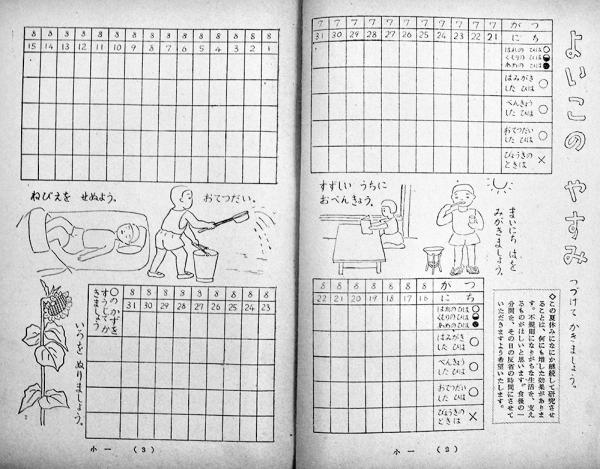 よいこの やすみ
つづけて かきましょう。
がつ 7 7 7 7 7 7 7 7 7 7 7
にち 21 22 23 24 25 26 27 28 29 30 31
はれの ひは ○
くもりの ひは
あめの ひは ●
はみがき
した ひは ○
べんきょう
した ひは ○
おてつだい
した ひは ○
びょうきの
ときは ×
まいにち はを
みがきましょう。
すずしい うちに
おべんきょう。
◇この夏休みになにか継続して研究させ
ることは、何にも増した効果がありま
す。不規則になりがちな生活を、支え
るものがほしいと思います。食後の一
分間を、その日の反省の時間にさせて
いただきますよう希望いたします。
がつ 8 8 8 8 8 8 8
にち 16 17 18 19 20 21 22
はれの ひは ○
くもりの ひは
あめの ひは ●
はみがき
した ひは ○
べんきょう
した ひは ○
おてつだい
した ひは ○
びょうきの
ときは ×
小一 (2)
8 8 8 8 8 8 8 8 8 8 8 8 8 8 8
1 2 3 4 5 6 7 8 9 10 11 12 13 14 15
おてつだい。
ねびえを せぬよう。
8 8 8 8 8 8 8 8 8
23 24 25 26 27 28 29 30 31
○のかずを
すうじでか
きましょう
いろを ぬりましょう。
小一 (3)